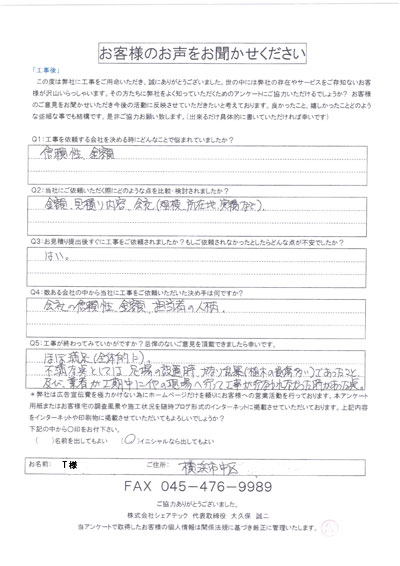 お客様のお声をお聞かせください
「工事後」
この度は弊社に工事をご用命いただき、誠にありがとうございました。世の中には弊社の存在やサービスをご存知ないお客
様が沢山いらっしゃいます。その方たちに弊社をよく知っていただくためのアンケートにご協力いただけるでしょうか？ お客様
のご意見をお聞かせいただき今後の活動に反映させていただきたいと考えております。良かったこと、嬉しかったことどのよう
な些細な事でも結構です。是非ご協力お願い致します。（出来るだけ具体的に書いていただければ幸いです）
Q1：工事を依頼する会社を決める時にどんなことで悩まれていましたか？
信頼性、金額
Q2：当社にご依頼いただく際にどのような点を比較・検討されましたか？
金額、見積り内容、会社（規模、所在地、実績など）。
Q3：お見積り提出後すぐに工事をご依頼されましたか？もしご依頼されなかったとしたらどんな点が不安でしたか？
はい。
Q4：数ある会社の中から当社に工事をご依頼いただいた決め手は何ですか？
会社の信頼性、金額、担当者の人柄。
Q5：工事が終わってみていかがですか？忌憚のないご意見を頂戴できましたら幸いです。
ほぼ満足（全体的に）。
不満な点としては、足場の設置時、
及び、業者が工期中に他の現場へ行って工事が行なわれなかった時があった点。
＊弊社は広告宣伝費を極力かけない為にホームページだけを頼りにお客様への営業活動を行っております。本アンケート
用紙またはお客様宅の調査風景や施工状況を随時ブログ形式のインターネットに掲載させていただいております。上記内容
をインターネットや印刷物に掲載させていただいてもよろしいでしょうか？
下記の中から〇印をお付下さい。
（　）名前を出してもよい　（〇）イニシャルなら出してもよい
お名前： T様　ご住所： 横浜市中区
FAX 045-476-9989
ご協力ありがとうございました。
株式会社シェアテック 代表取締役 大久保 誠二
当アンケートで取得したお客様の個人情報は関係法規に基づき厳正に管理いたします。